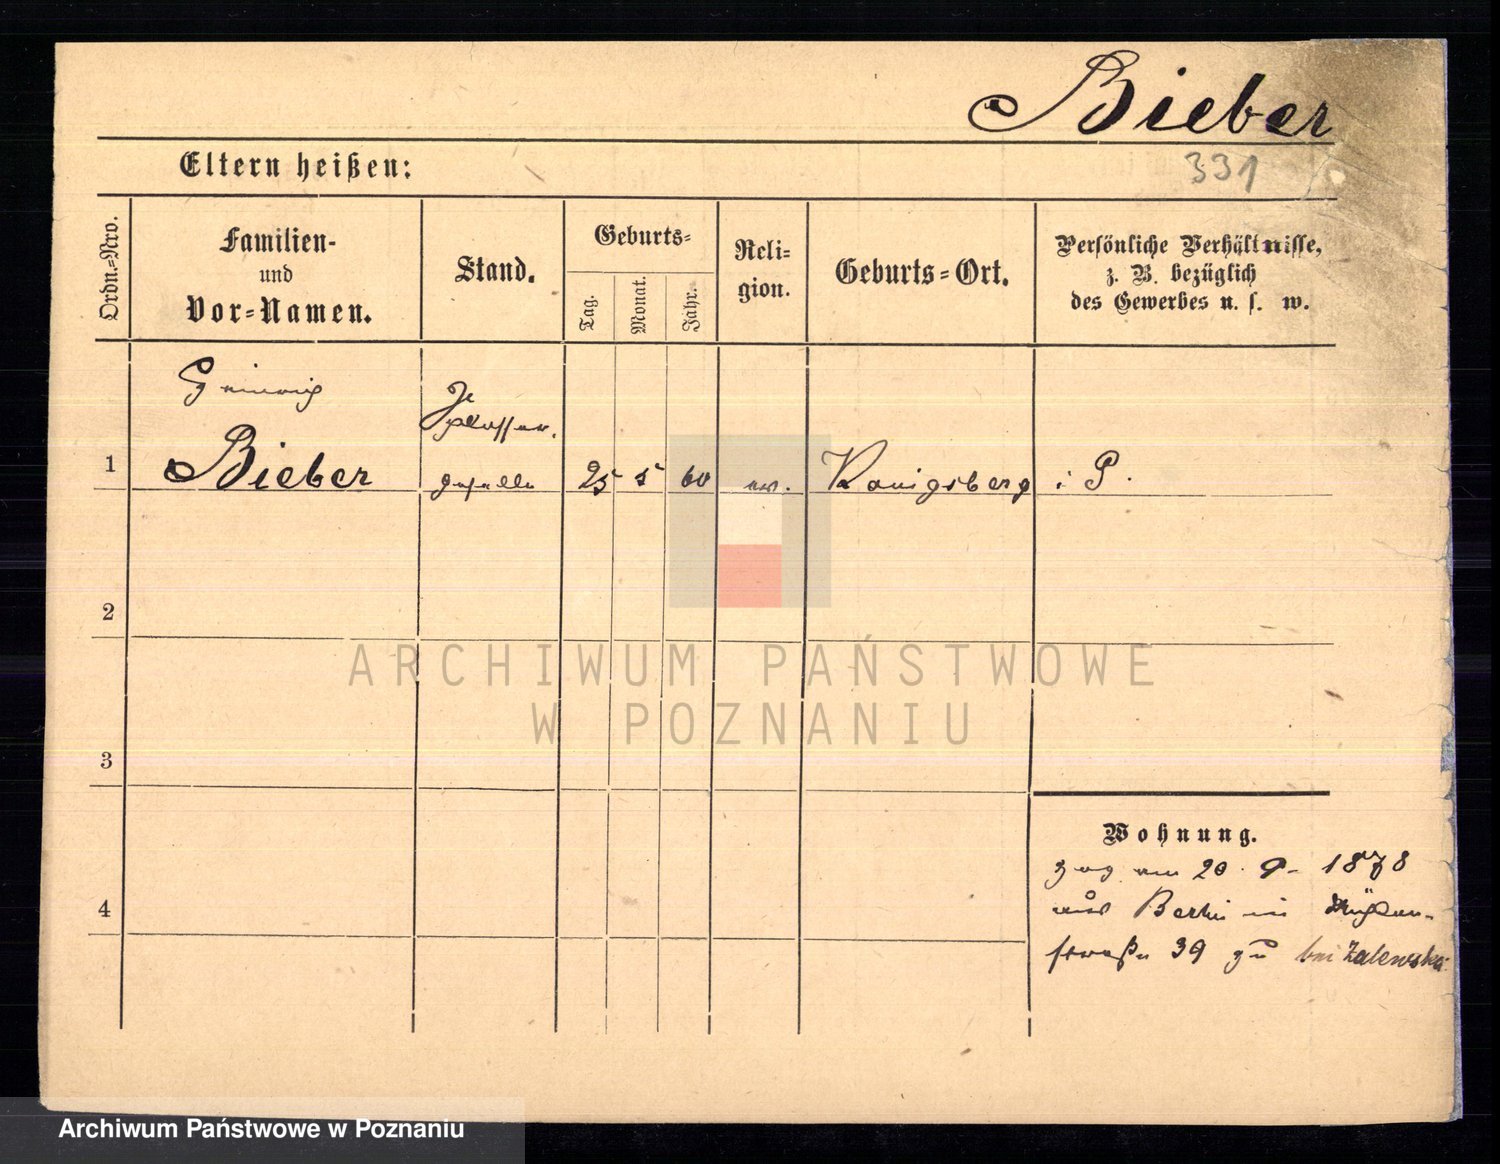 Bieber
Eltern heißen:
331
Ordn.-Nro.
Familien-
und
Vor-Namen.
Stand.
Geburts-
Tag.
Monat.
Jahr.
Reli-
gion.
Geburts-Ort.
Persönliche Verhältnisse,
z. B. bezüglich
des Gewerbes u. s. w.
Heinrich
Bieber
1
Schlosser.
geselle
25 5 60 ev. Königsberg i P.
2
ARCHIWUM PAŃSTWOWE
W POZNANIU
3
Wohnung.
zog am 20. 9. 1878
4
aus Berlin in Mühlen-
straße 39 zu bei Zalewska
Archiwum Państwowe w Poznaniu